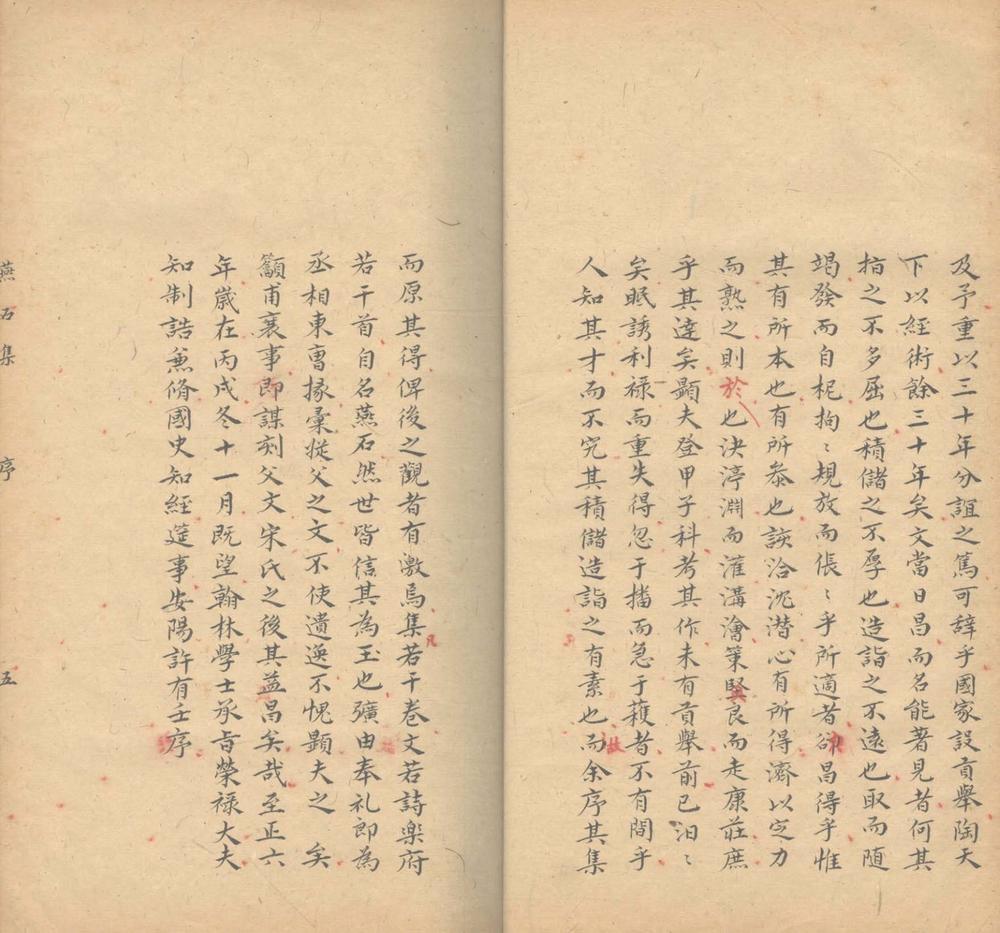 及予重以三十年分誼之篤可辞乎國家設貢舉陶天
下以經術餘三十年矣文當日昌而名能著見者何其
指之不多屈也積儲之不厚也造詣之不遠也取而随
竭發而自柅拘〻規放而倀〻乎所適者卻昌得乎惟
其有所本也有所叅也詼洽沈潜心有所得濟以定力
而熟之則於也決渟淵而漼溝澮策堅良而走康莊庶
乎其達矣顕夫登甲子科考其作未有貢舉前已汩〻
矣眠誘利禄而重失得忽于播而急于穫者不有間乎
人知其才而不究其積儲造詣之有素也故而余序其集
而原其得俾後之觀者有激焉集凡若干卷文若詩楽府
若干首自名燕石然世皆信其為玉也彍由奉礼郎為
丞相東曹掾彙挻父之文不使遺逸不愧顕夫之 矣
籲甫襄事即謀刻父文宋氏之後其益昌矣哉至正六
年嵗在丙戌冬十一月既望翰林學士承旨榮禄大夫
知制誥兼脩國史知經筵事安陽許有壬序
燕石集 序 五